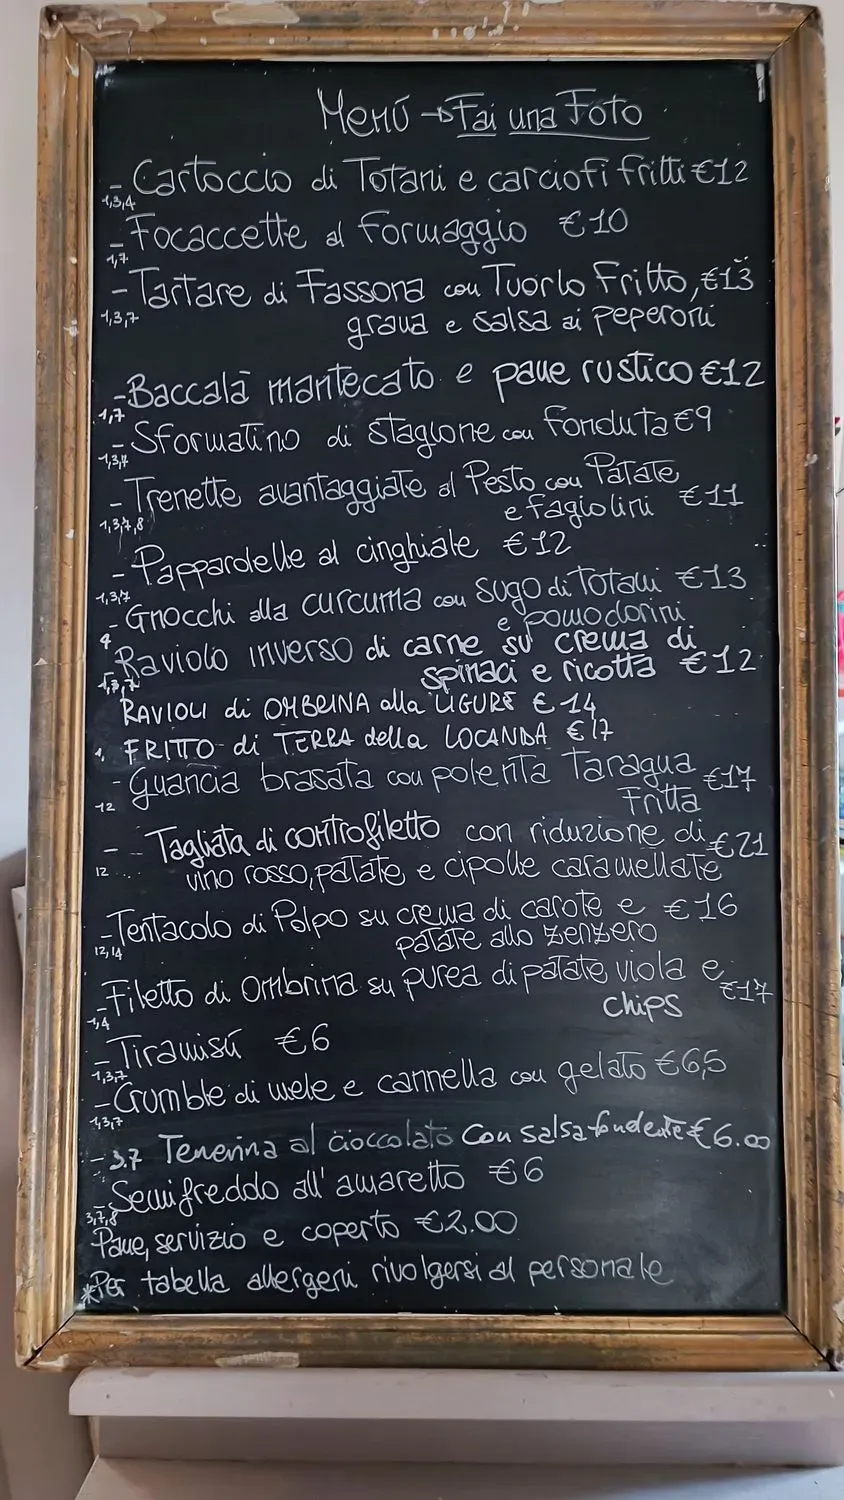 Menú → Fai una Foto
- Cartoccio di Totani e carciofi fritti €12
1,3,4
- Focaccette al formaggio €10
1,7
- Tartare di Fassona con Tuorlo Fritto, €13
1,3,7
grana e salsa ai peperoni
- Baccalà mantecato e pane rustico €12
1,7
- Sformatino di stagione con fonduta €9
1,3,7
- Trenette avantaggiate al Pesto con Patate
e fagiolini €11
1,3,7,8
- Pappardelle al cinghiale €12
1,3,7
- Gnocchi alla curcuma con sugo di Totani €13
e pomodorini
4
Raviolo inverso di carne su crema di
1,3,7
spinaci e ricotta €12
RAVIOLI di OMBRINA alla LIGURE €14
1, FRITTO di TERRA della LOCANDA €17
- Guancia brasata con polenta Taragna €17
Fritta
12
- Tagliata di controfiletto con riduzione di €21
12 vino rosso, patate e cipolle caramellate
- Tentacolo di Polpo su crema di carote e €16
12,14
patate allo zenzero
- Filetto di Ombrina su purea di patate viola e €17
1,4
chips
- Tiramisú €6
1,3,7
- Crumble di mele e cannella con gelato €6,5
1,3,7
- 3.7 Tenerina al cioccolato con salsa fondente €6.00
- Semifreddo all'amaretto €6
3,7,8
Pane, servizio e coperto €2.00
*Per tabella allergeni rivolgersi al personale